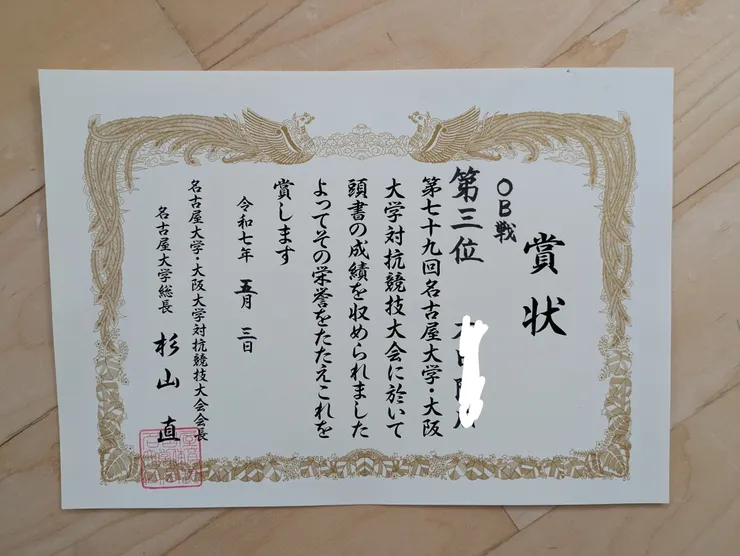 賞状
OB戦
第三位
第七十九回名古屋大学・大阪
大学対抗競技大会に於いて
頭書の成績を収められました
よってその栄誉をたたえこれを
賞します
令和七年 五月 三日
名古屋大学・大阪大学対抗競技大会会長
名古屋大学総長 杉山 直